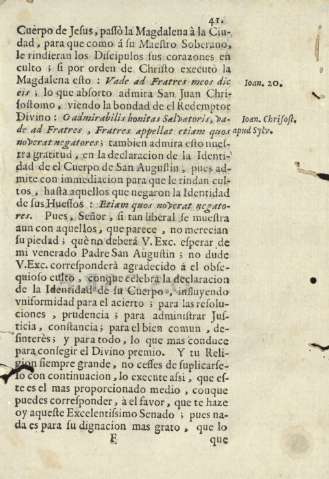 41.
Cuerpo de Jesus, passò la Magdalena à la Ciu-
dad, para que como à su Maestro Soberano,
le rindieran los Discipulos sus corazones en
culto; si por orden de Christo executò la
Magdalena esto: Vade ad Fratres meos dic
eis; lo que absorto admira San Juan Chri-
Ioan. 20.
sostomo, viendo la bondad de el Redemptor
Divino: O admirabilis bonitas Salvatoris, va-
Ioan. Chrisost.
de ad Fratres, Fratres appellat etiam quos
apud Sylv.
noverat negatores; tambien admira esto nues-
tra gratitud, en la declaracion de la Identi-
dad de el Cuerpo de San Augustin, pues ad-
mite con immediacion para que le rindan cul-
tos, hasta aquellos que negaron la Identidad
de sus Huessos: Etiam quos noverat negato-
res. Pues, Señor, si tan liberal se muestra
aun con aquellos, que parece, no merecian
su piedad; què no deberá V. Exc. esperar de
mi venerado Padre San Augustin; no dude
V. Exc. corresponderà agradecido à el obse-
quioso culto, conque celebra la declaracion
de la Identidad de su Cuerpo, influyendo
vniformidad para el acierto; para las resolu-
ciones, prudencia; para administrar Jus-
ticia, constancia; para el bien comun, de-
sinterès; y para todo, lo que mas conduce
para conseguir el Divino premio. Y tu Reli-
gion siempre grande, no cesses de suplicarse-
lo con continuacion, lo execute assi, que es-
te es el mas proporcionado medio, conque
puedes corresponder, à el favor, que te haze
oy aqueste Excelentissimo Senado; pues na-
da es para su dignacion mas grato, que lo
F
que